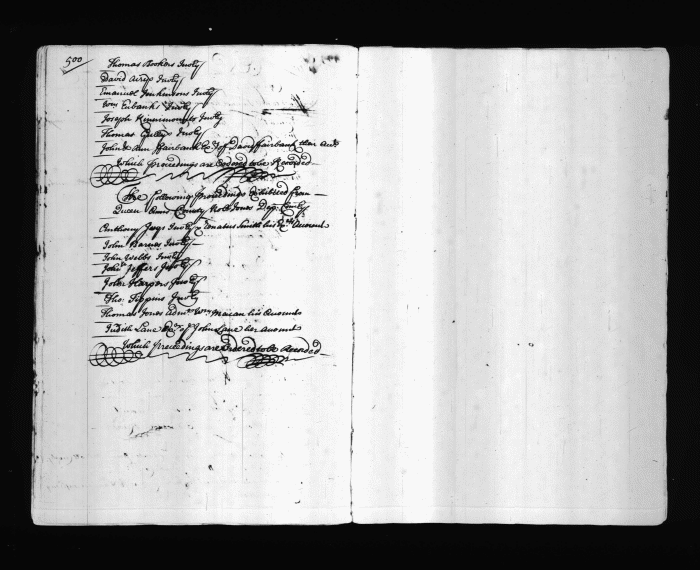 500
Thomas Bookers Invty
David Airys Invty
Emanuel Jenkinsons Invty
Wm Eubanks Invty
Joseph Kinnimonts Invty
Thomas Invty
John & Ann Fairbank Exrs of David Fairbank their Acct
Which Proceedings are Ordered to be Recorded
The following Proceedings Exhibited from
Queen Anns County Depty Comry
Anthony Invty Smith his Accounts
John Barnes Invty
John Webbs Invty
John Jeffers Invty
John Harpers Invty
Tho: Tippins Invty
Thomas Jones Admr Wm his Accounts
Judith Lane Exx of John Lane her Accounts
Which Proceedings are Ordered to be Recorded